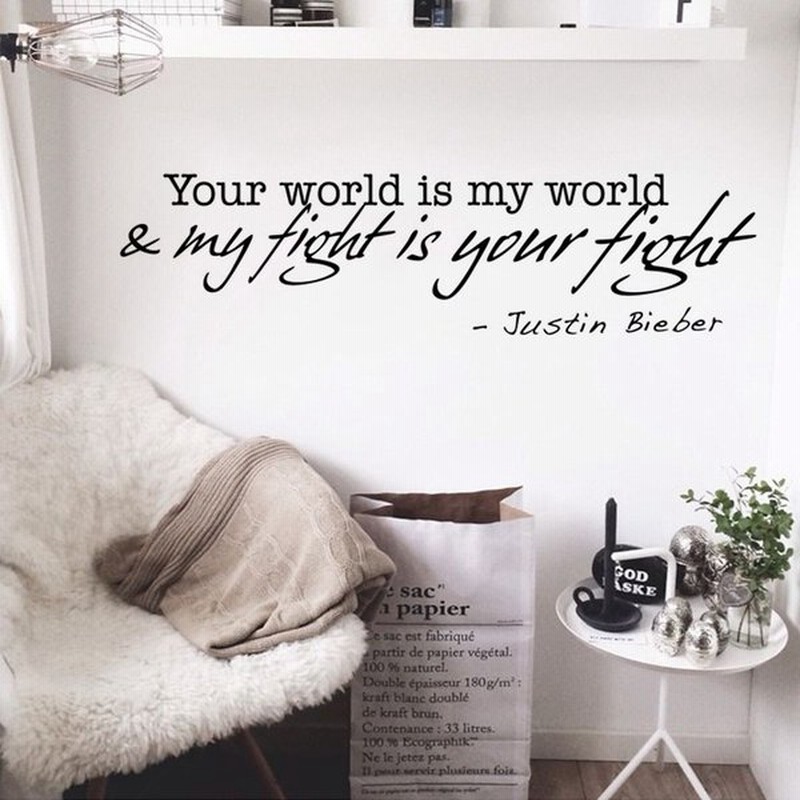 Your world is my world
& my fight is your fight
- Justin Bieber
GOD
PÅSKE
sac
papier
Le sac est fabriqué
à partir de papier végétal.
100 % naturel.
Double épaisseur 180g/m² :
kraft blanc doublé
de kraft brun.
Contenance : 33 litres.
100 % Ecographik.
Ne le jetez pas.
Il peut servir plusieurs fois.